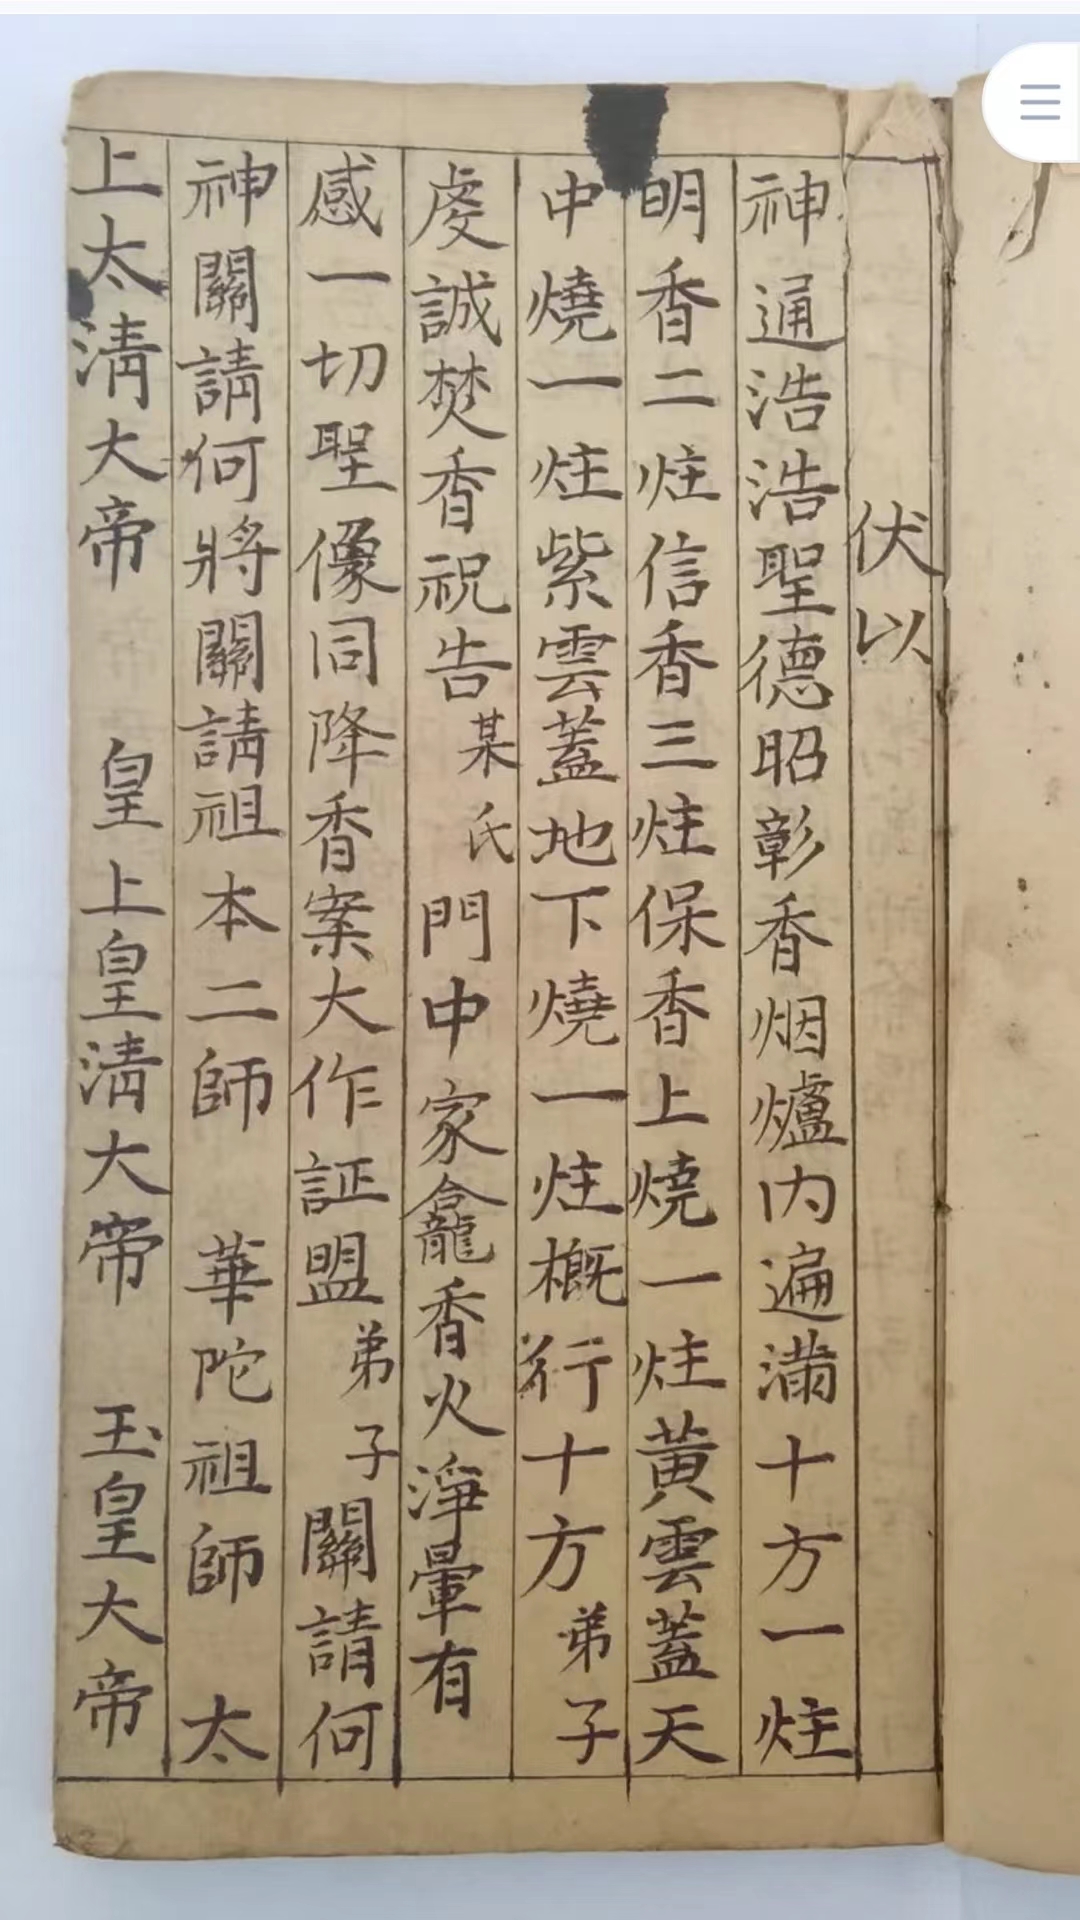 伏以
神通浩浩聖德昭彰香烟爐内遍滿十方一炷
明香二炷信香三炷保香上燒一炷黃雲蓋天
中燒一炷紫雲蓋地下燒一炷概行十方弟子
虔誠焚香祝告某氏門中家龕香火淨暈有
感一切聖像同降香案大作証盟弟子關請何
神關請何將關請祖本二師 華陀祖師 太
上太清大帝 皇上皇清大帝 玉皇大帝